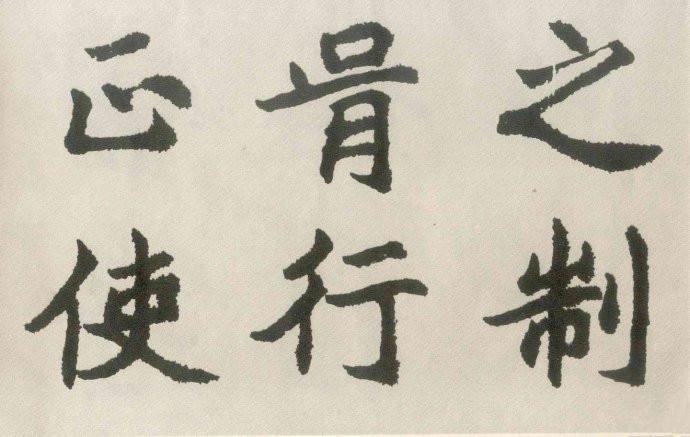 之制
肯行
正使